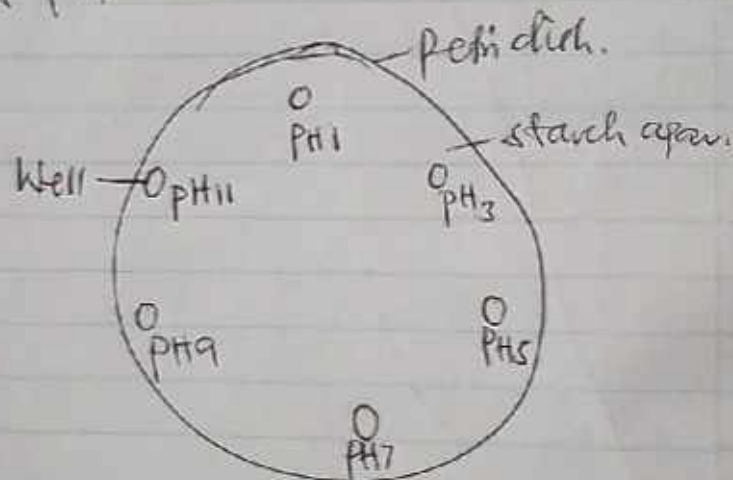 Petri dish.
PH1
starch agar.
Well
pH11
pH3
pH9
PH5
PH7